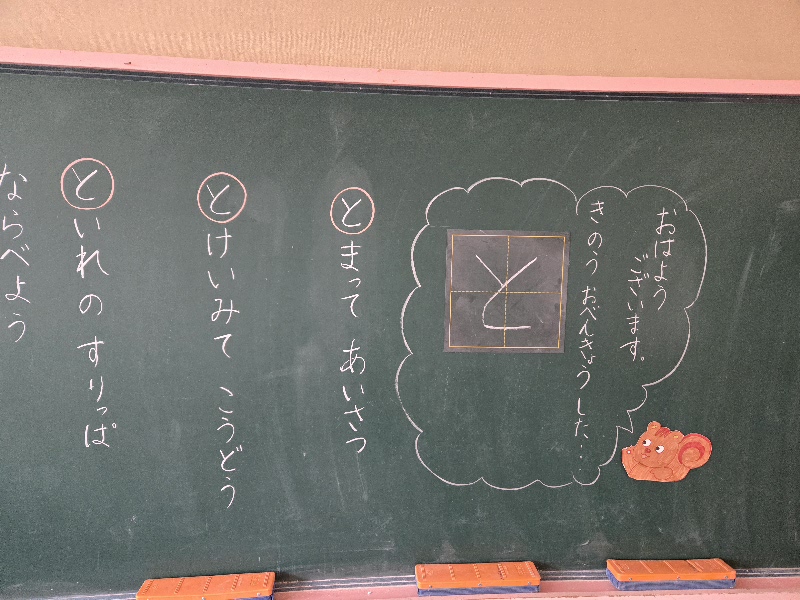 おはよう
ございます。
きのう おべんきょうした...
と
とまって あいさつ
とけいみて こうどう
といれの すりっぱ
ならべよう